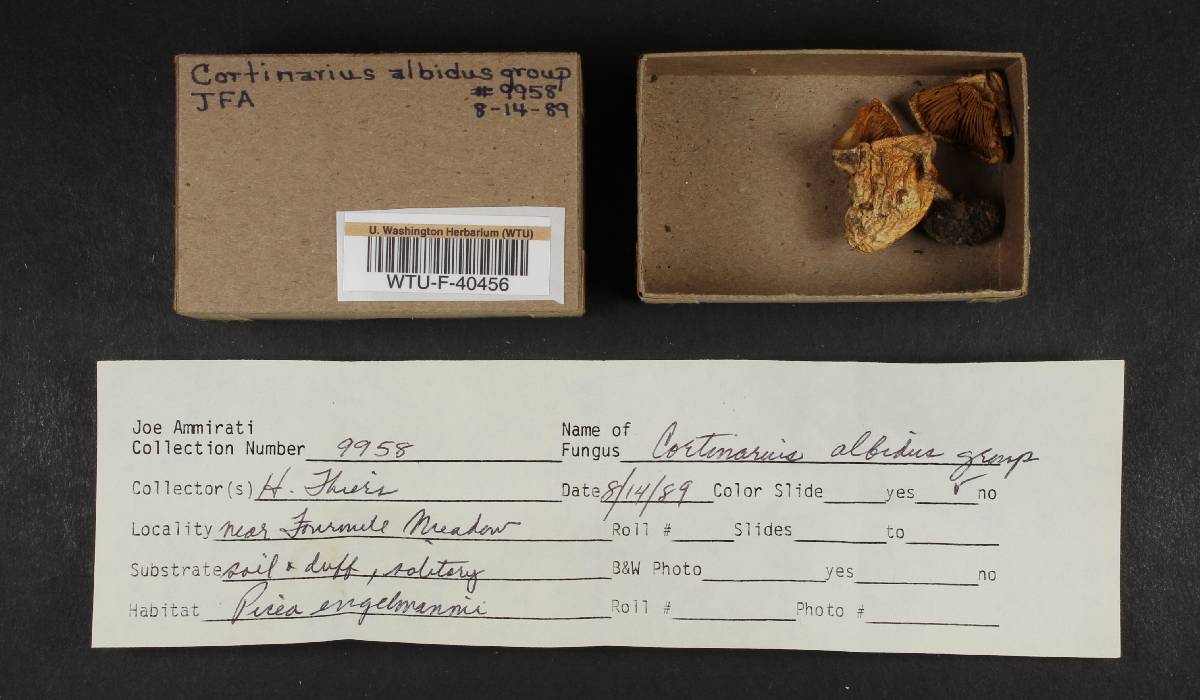 Cortinarius albidus group
JFA
#9958
8-14-89
U. Washington Herbarium (WTU)
WTU-F-40456
Joe Ammirati
Collection Number 9958
Name of
Fungus Cortinarius albidus group
Collector(s) H. Thiers
Date 8/14/89 Color Slide yes ✓ no
Locality near Fourmile Meadow
Roll # Slides to
Substrate soil & duff, solitary
B&W Photo yes no
Habitat Picea engelmannii
Roll # Photo #